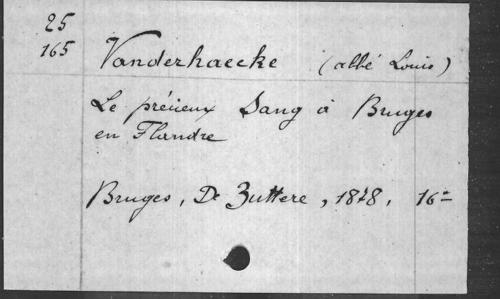 25
165
Vanderhaecke (abbé Louis)
Le précieux Sang à Bruges
en Flandre
Bruges, De Zuttere, 1878, 16°